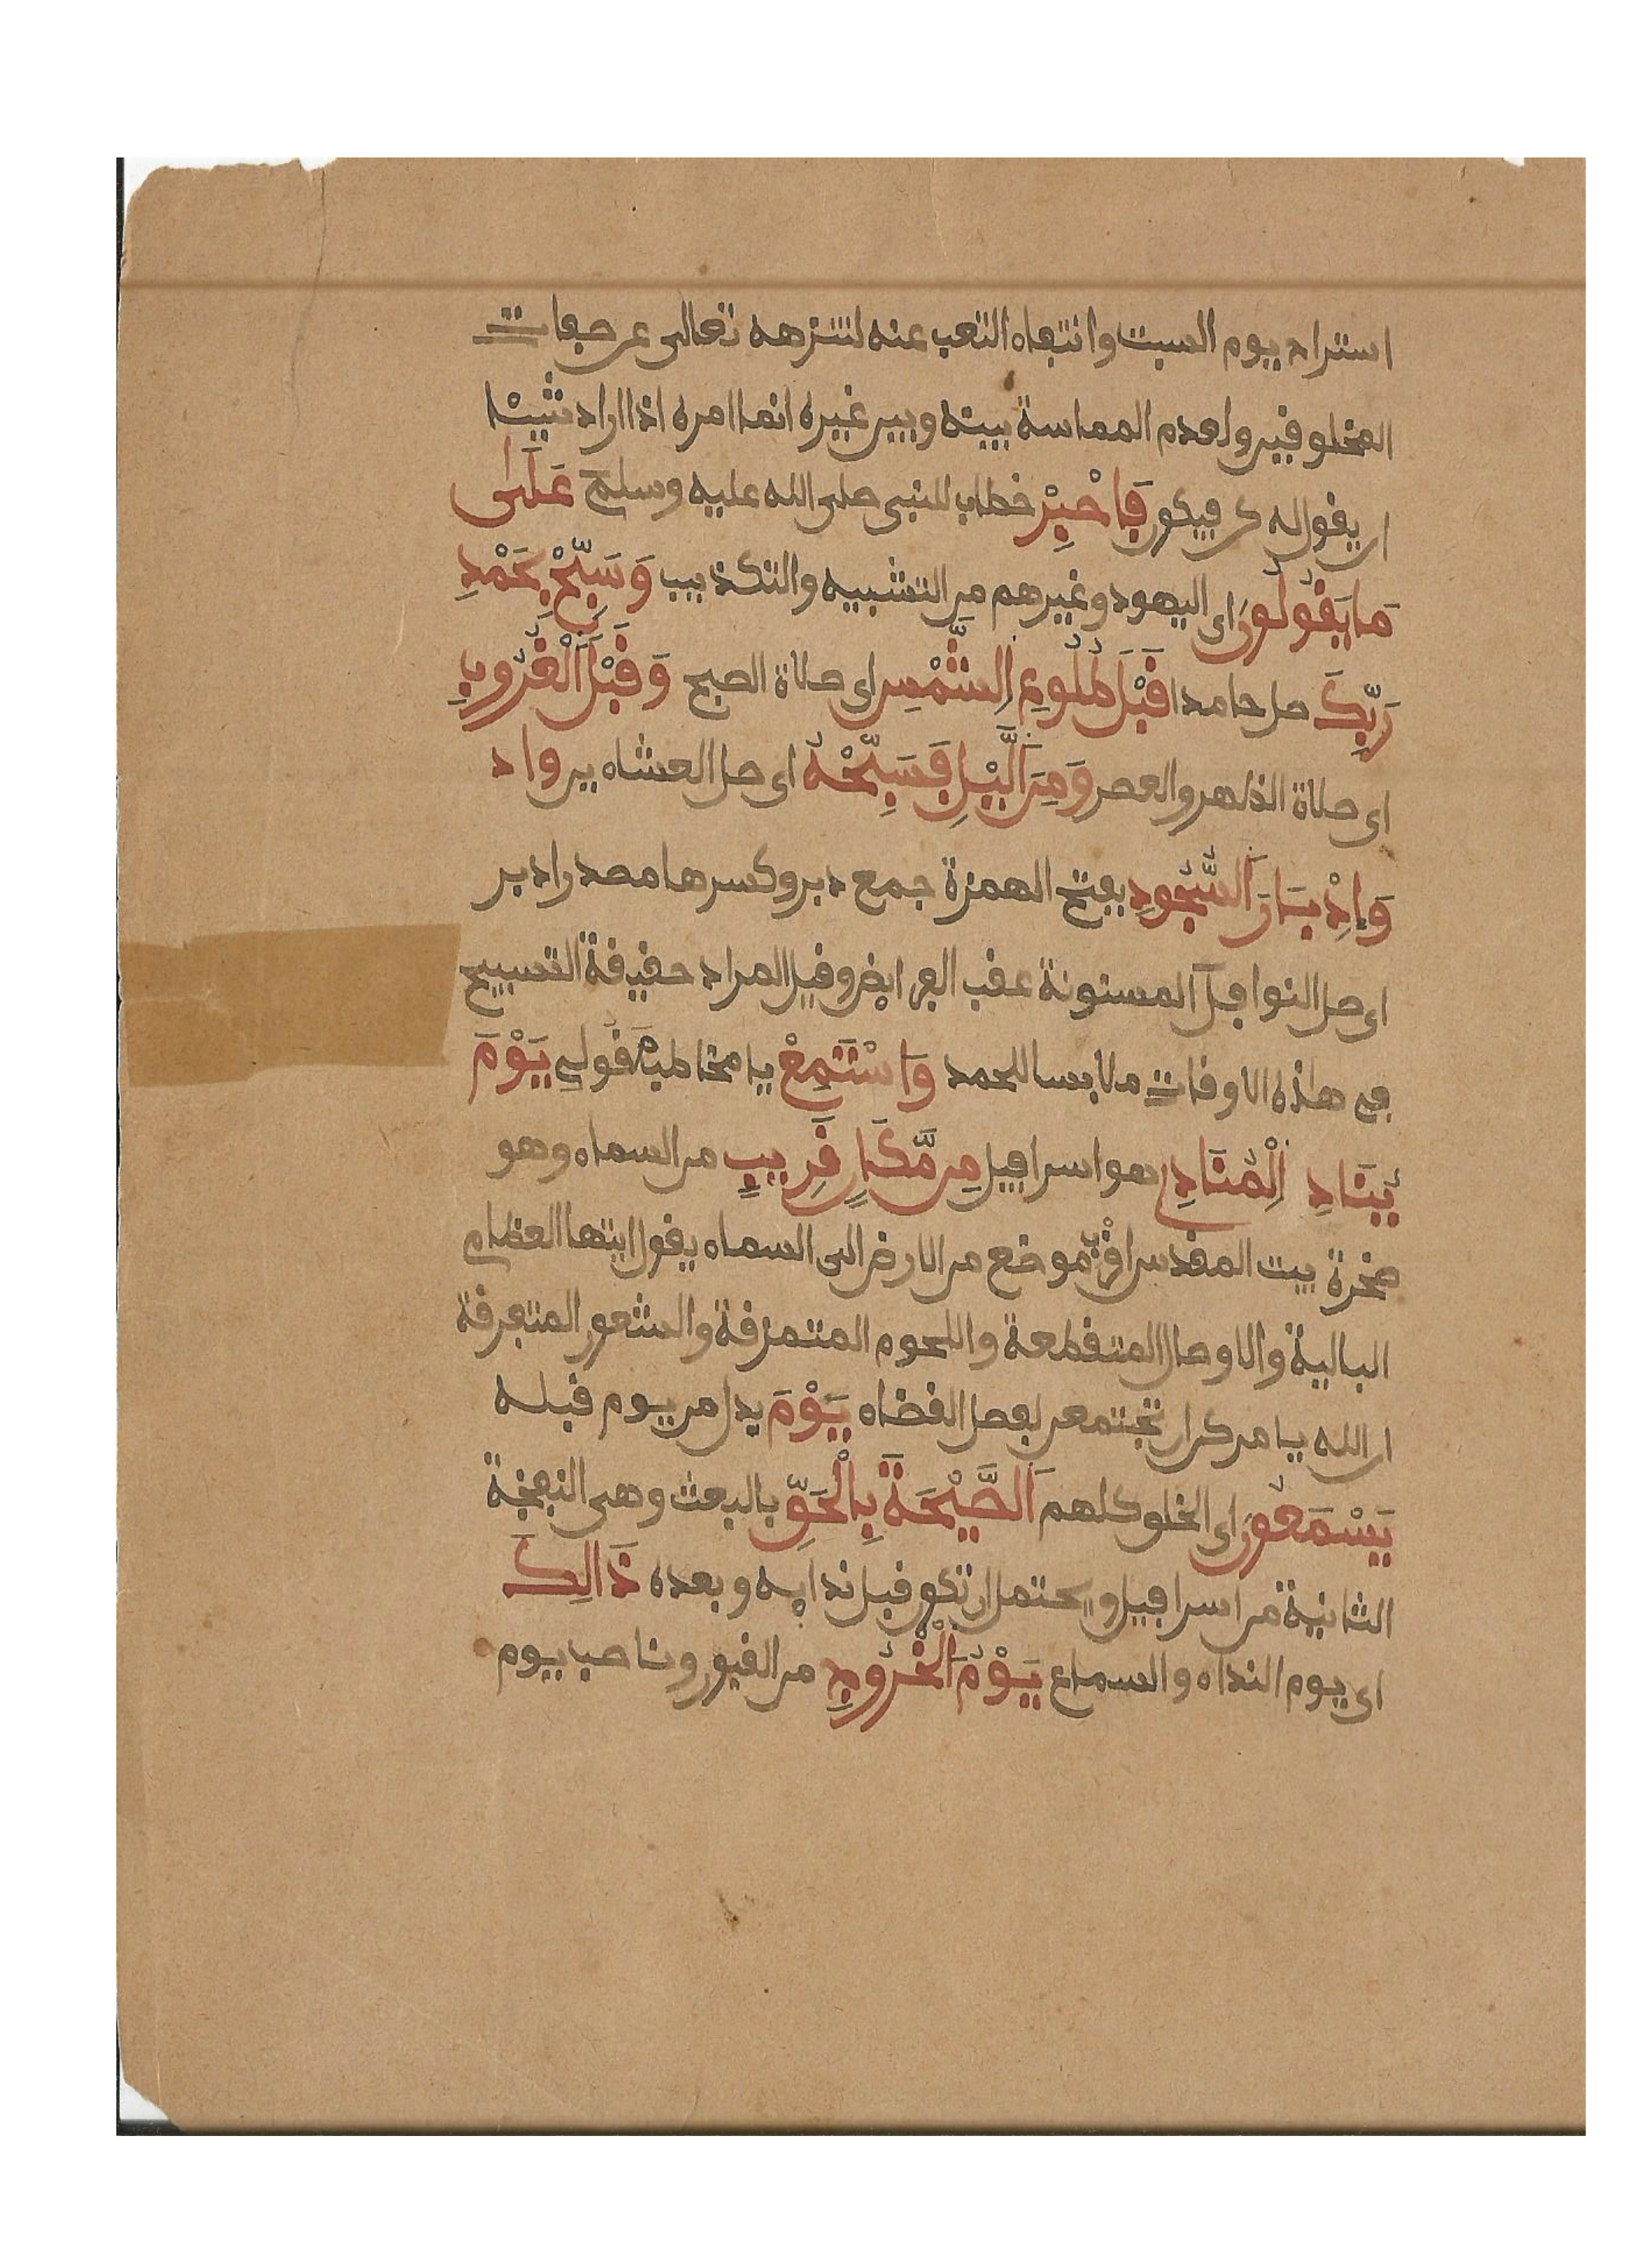 استراح يوم السبت وانتفاء التعب عنه لتنزهه تعالى عن صفات
المخلوقين ولعدم المماسة بينه وبين غيره انما امره اذا اراد شيئا
ان يقول له كن فيكون فَاصْبِرْ خطاب للنبي صلى الله عليه وسلم عَلَىٰ
مَا يَقُولُونَ اى اليهود وغيرهم من التشبيه والتكذيب وَسَبِّحْ بِحَمْدِ
رَبِّكَ صل حامدا قَبْلَ طُلُوعِ اِ۬لشَّمْسِ اى صلاة الصبح وَقَبْلَ اَ۬لْغُرُوبِ
اى صلاة الظهر والعصر وَمِنَ اَ۬لَّيْلِ فَسَبِّحْهُ اى صل العشاءين واد
وَإِدْبَارَ اَ۬لسُّجُودِ بفتح الهمزة جمع دبر وكسرها مصدر ادبر
اى صل النوافل المسنونة عقب الفرايض وقيل المراد حقيقة التسبيح
في هذه الاوقات ملابسا للحمد وَاسْتَمِعْ يا مخاطبا مقولي يَوْمَ
يُنَادِ اِ۬لْمُنَادِۦ هو اسرافيل مِن مَّكَانٍ قَرِيبٍ من السماء وهو
صخرة بيت المقدس اقرب موضع من الارض الى السماء يقول ايتها العظام
البالية والاوصال المتقطعة واللحوم المتمزقة والشعور المتفرقة
ان الله يامركن ان تجتمعن لفصل القضاء يَوْمَ بدل من يوم قبله
يَسْمَعُونَ اى الخلق كلهم اَ۬لصَّيْحَةَ بِالْحَقِّ بالبعث وهي النفخة
الثانية من اسرافيل ويحتمل ان تكون قبل ندايه وبعده ذَالِكَ
اى يوم النداء والسماع يَوْمُ اُ۬لْخُرُوجِ من القبور وناصب يوم